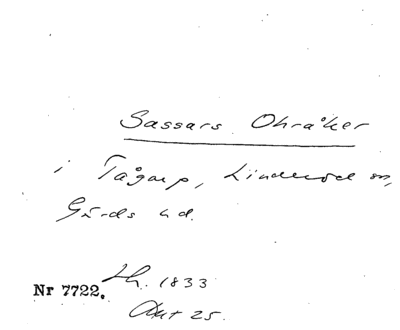 Sassars Ohråker
i Tågarp, Linderöd sn,
Gärds hd.
Lh. 1833
Nr 7722.
Akt 25.